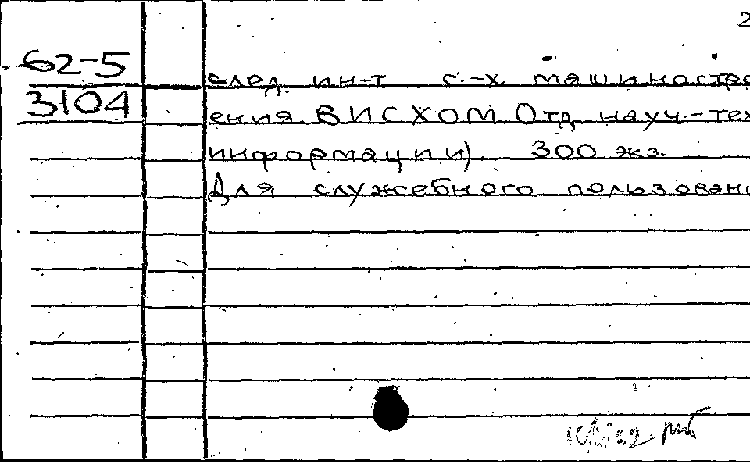 2
62-5
3104
след. ин-т с.-х. машиностро
ения ВИСХОМ. Отд. науч.-тех
информации). 300 экз.
Для служебного пользовани